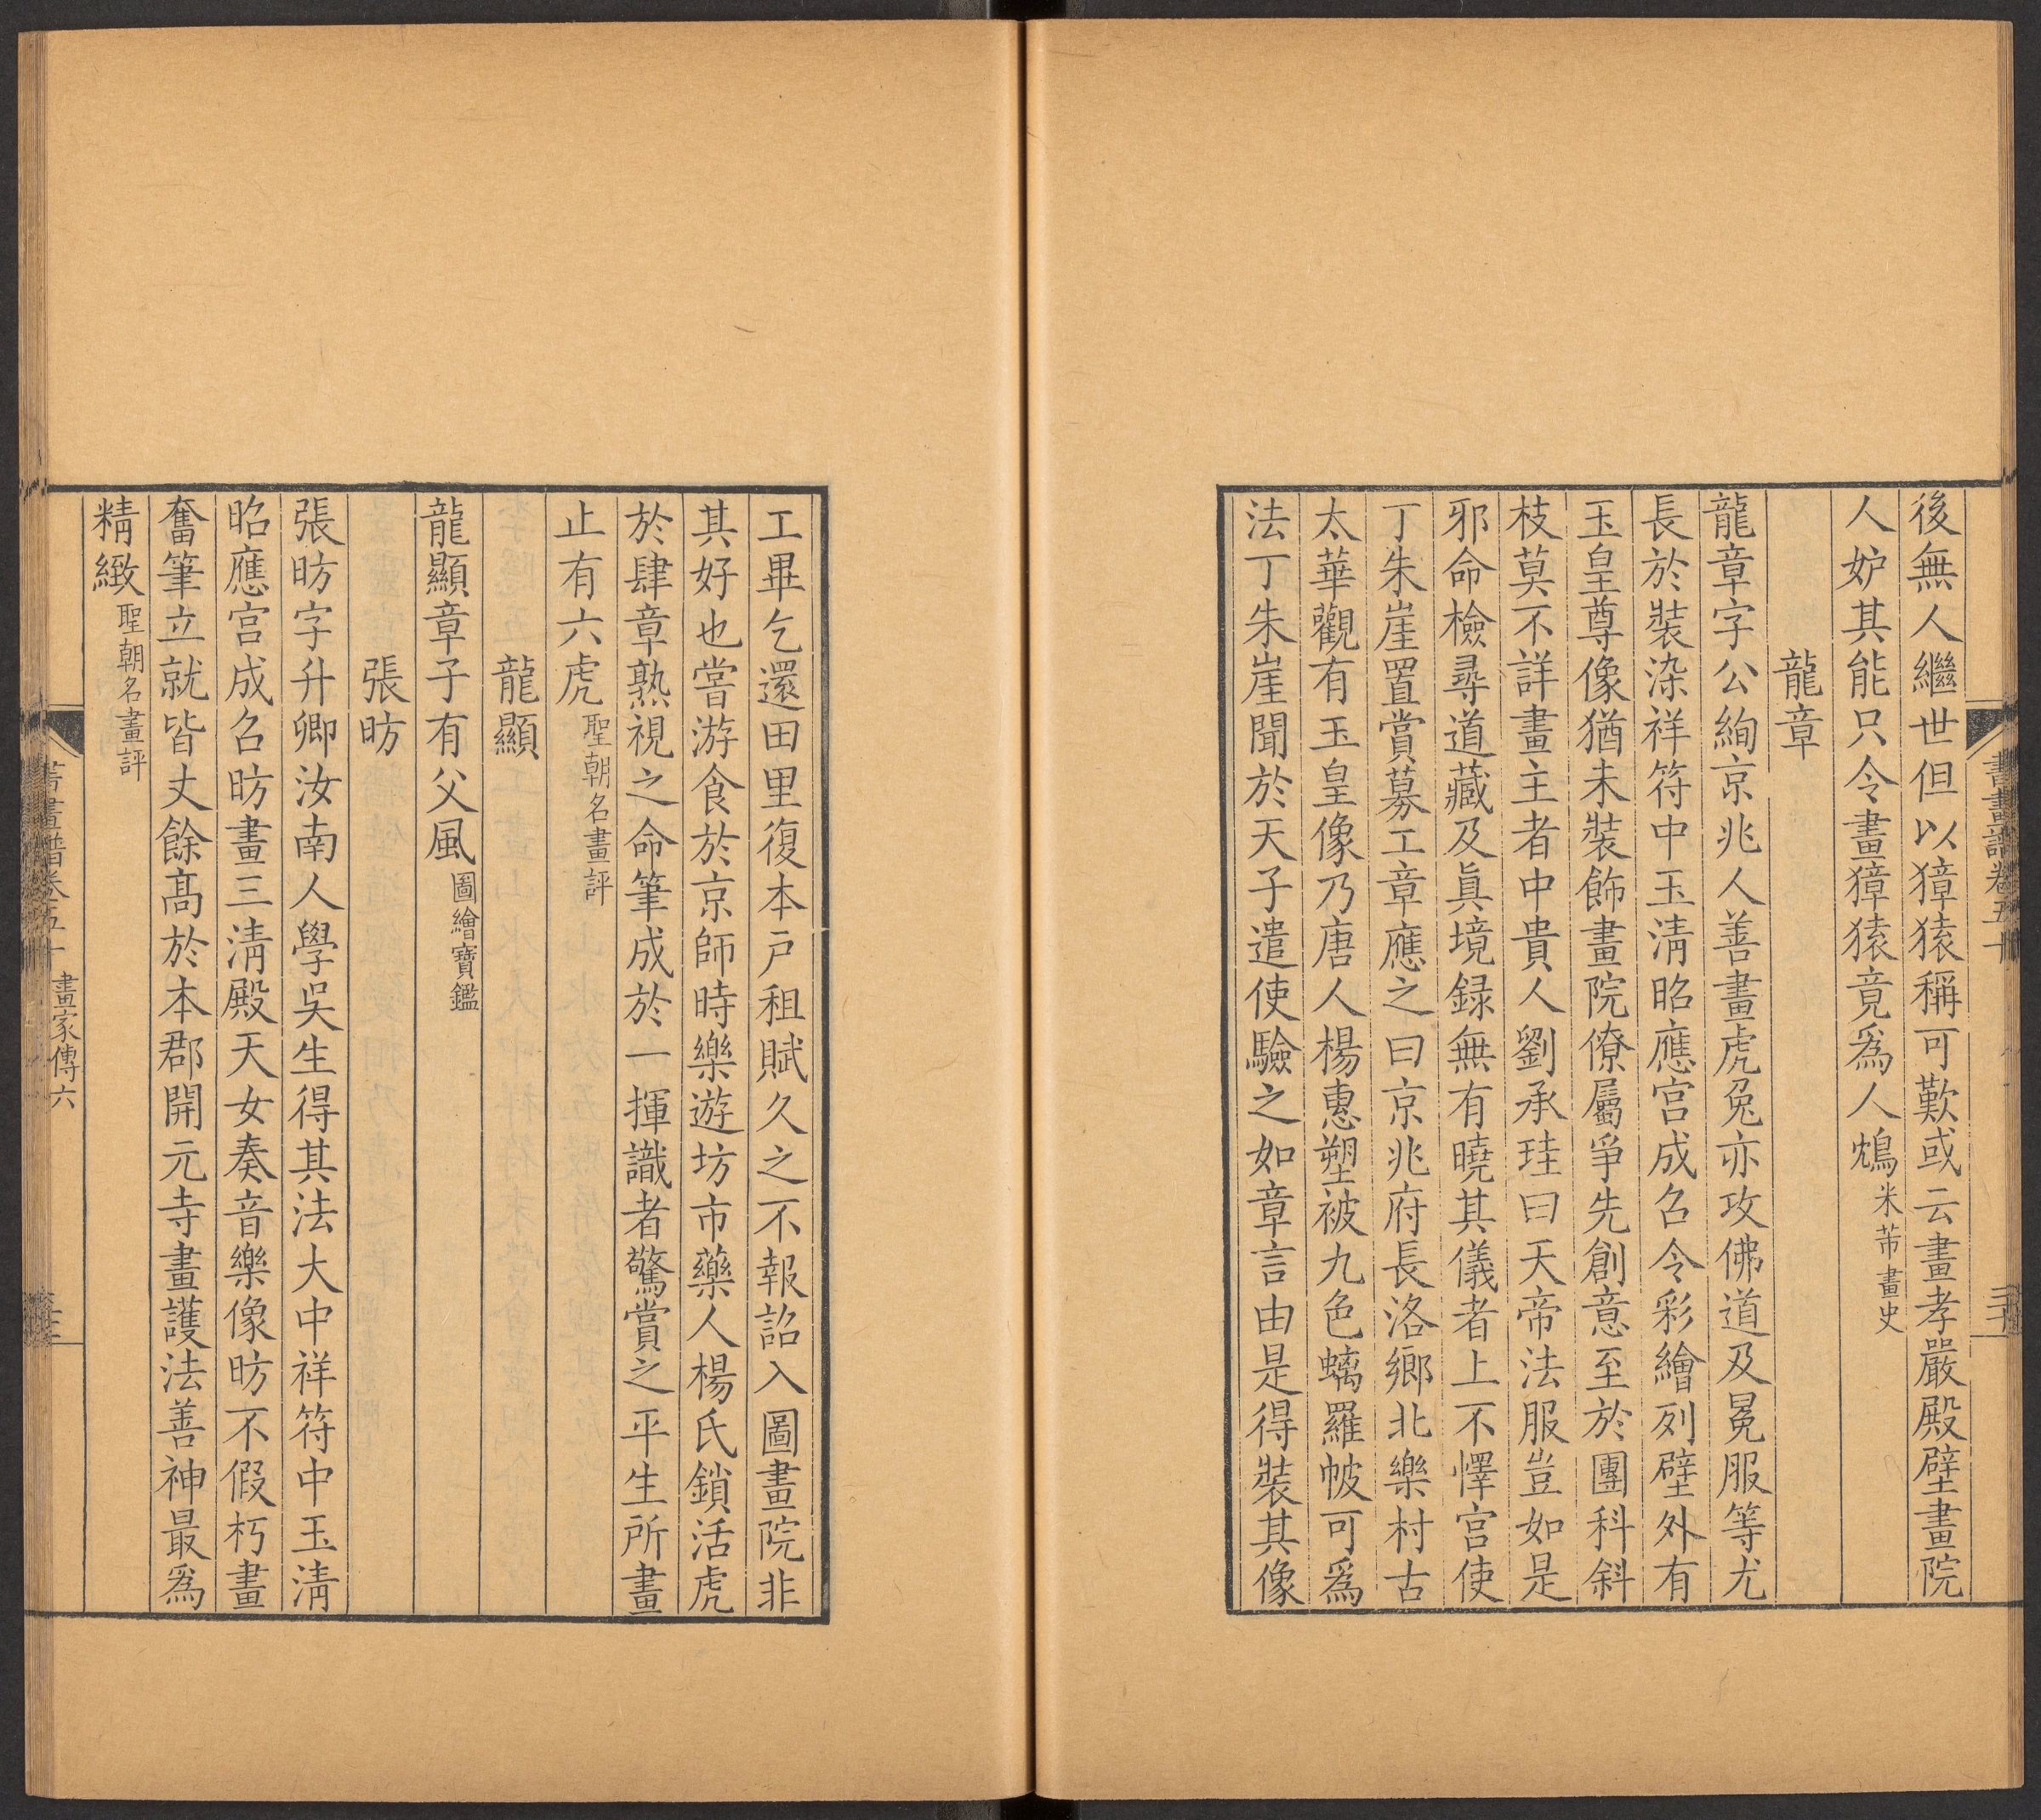 後無人繼世但以獐猿稱可歎或云畫孝嚴殿壁畫院
人妒其能只令畫獐猿竟爲人鴆米芾畫史
龍章
龍章字公絢京兆人善畫虎兔亦攻佛道及冕服等尤
長於裝染祥符中玉清昭應宮成召令彩繪列壁外有
玉皇尊像猶未裝飾畫院僚屬爭先創意至於團科斜
枝莫不詳畫主者中貴人劉承珪曰天帝法服豈如是
邪命檢尋道藏及眞境録無有曉其儀者上不懌宮使
丁朱崖置賞募工章應之曰京兆府長洛鄉北樂村古
太華觀有玉皇像乃唐人楊惠塑被九色螭羅帔可爲
法丁朱崖聞於天子遣使驗之如章言由是得裝其像
工畢乞還田里復本戸租賦久之不報詔入圖畫院非
其好也嘗游食於京師時樂遊坊市藥人楊氏鎖活虎
於肆章熟視之命筆成於一揮識者驚賞之平生所畫
止有六虎聖朝名畫評
龍顯
龍顯章子有父風圖繪寶鑑
張昉
張昉字升卿汝南人學吳生得其法大中祥符中玉淸
昭應宮成召昉畫三淸殿天女奏音樂像昉不假朽畫
奮筆立就皆丈餘髙於本郡開元寺畫護法善神最爲
精緻聖朝名畫評
書畫譜卷五十 畫家傳六